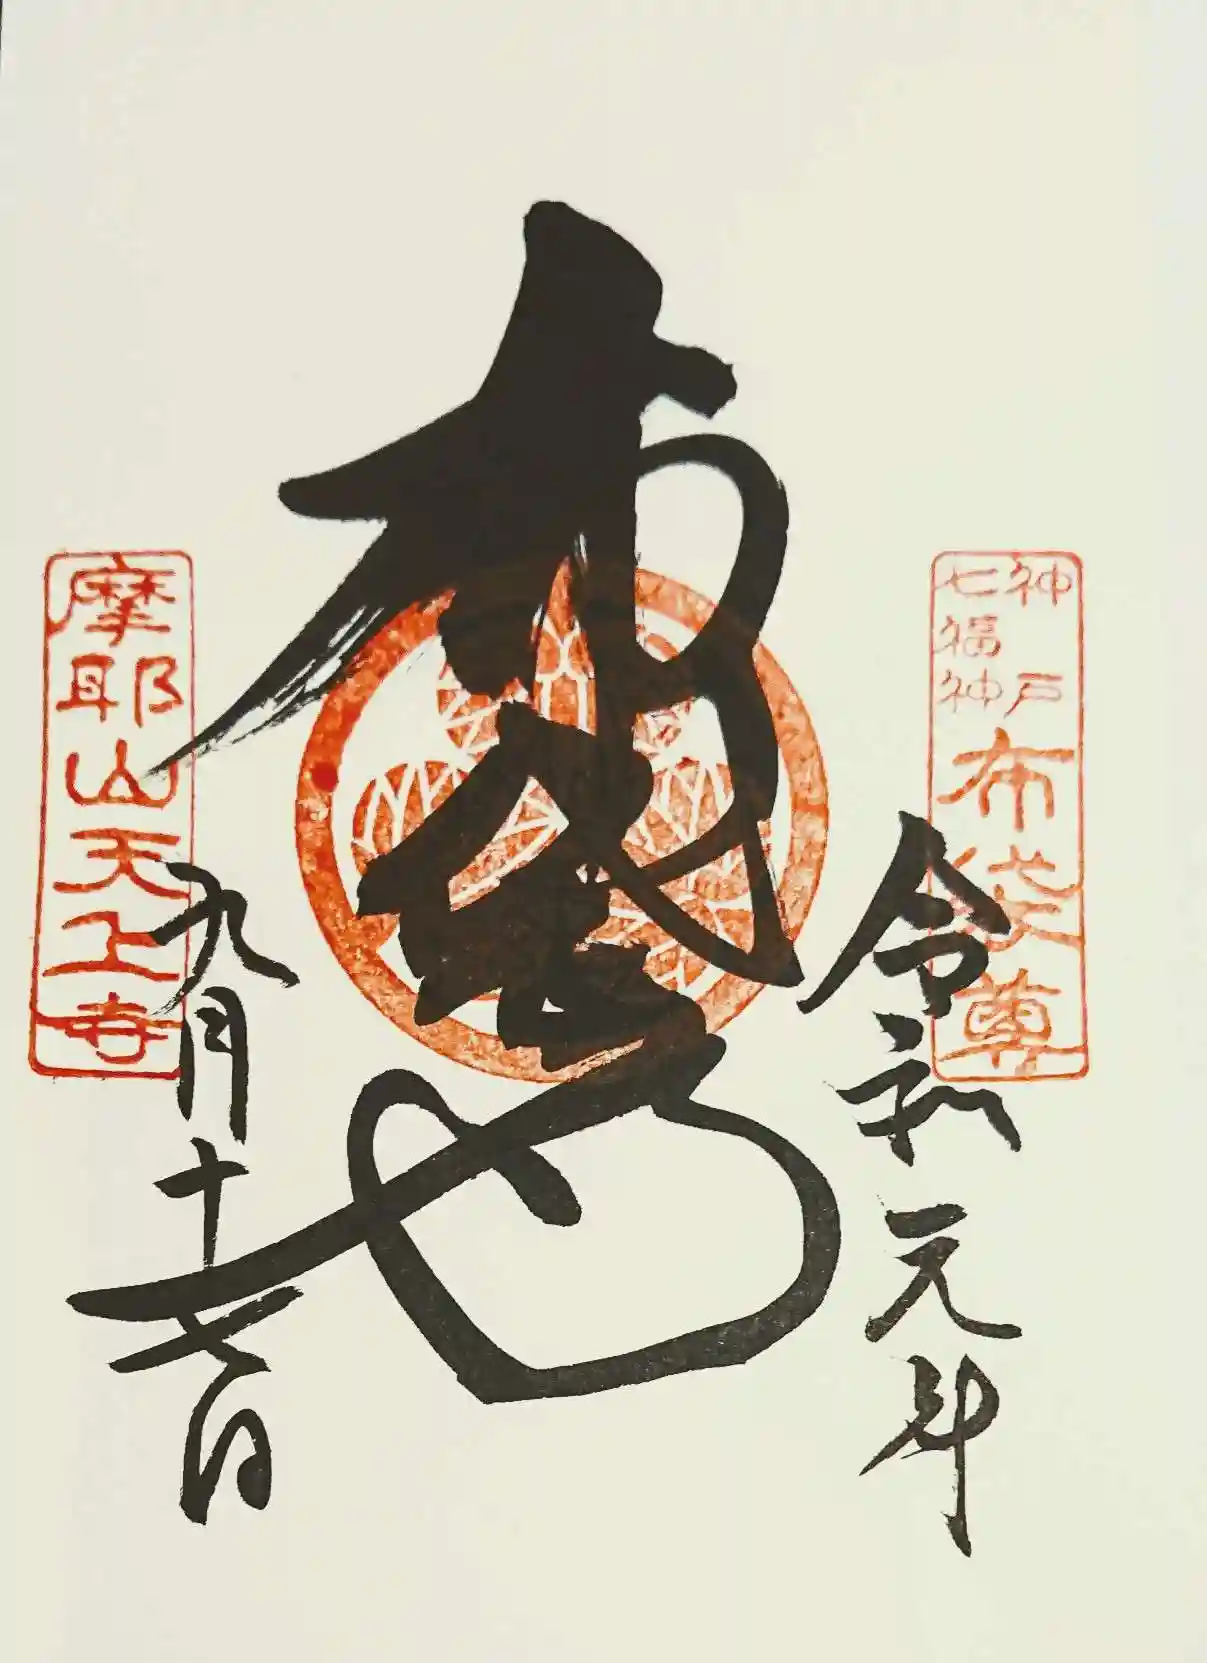 神戸
七福神
布袋尊
令和元年
布袋尊
九月十七日
摩耶山天上寺